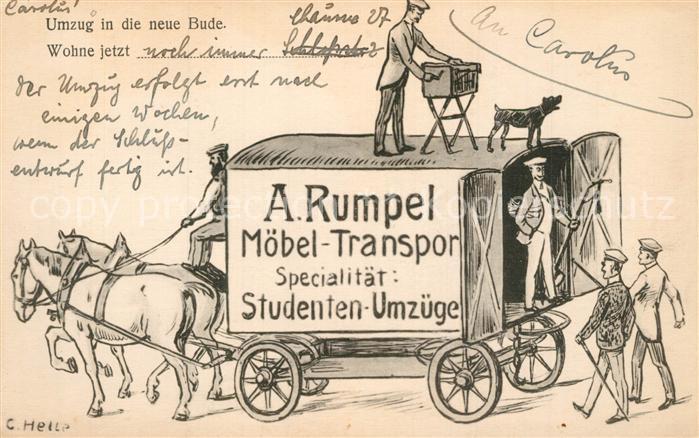 Carolus!
Umzug in die neue Bude.
Wohne jetzt noch immer
27
An Carolus
der Umzug erfolgt erst nach
einigen Wochen,
wenn der Schluß-
entwurf fertig ist.
A. Rumpel
Möbel-Transpor
Specialität:
Studenten-Umzüge
C. Helle